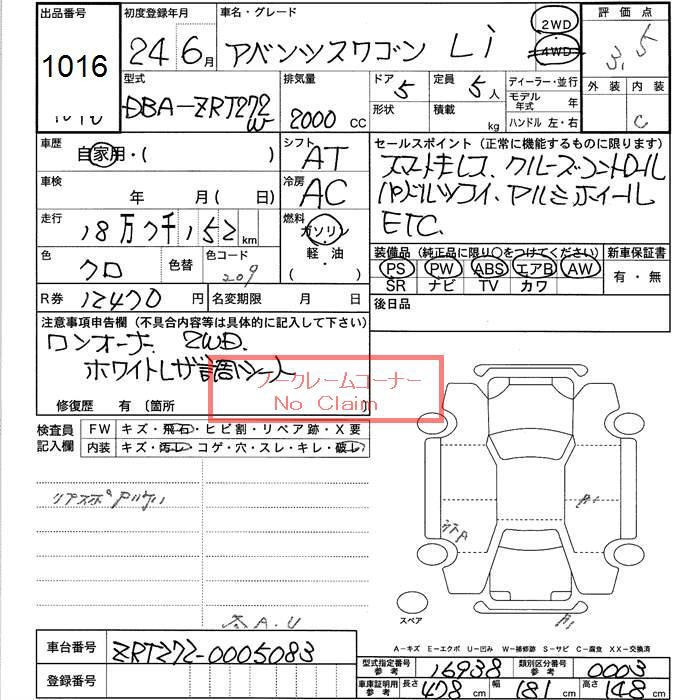 出品番号 初度登録年月 車名・グレード 2WD 評価点
1016 24 6月 アベンツスワゴン Li 4WD 3.5
1016
型式 排気量 ドア 5 定員 5人 ディーラー・並行 外装 内装
DBA-ZRT272W 2000 CC 形状 積載 kg モデル年式 年 C
ハンドル 左・右
車歴 自家用・( ) シフト AT セールスポイント (正常に機能するものに限ります)
スマートキーレス、クルーズコントロール
車検 年 月( 日) 冷房 AC パドルシフト、アルミホイール
ETC.
走行 18万7千152km 燃料 ガソリン 装備品 (純正品に限り○をつけてください) 新車保証書
軽・油 PS PW ABS エアB AW 有・無
色 クロ 色替 色コード 209 ( ・ ) SR ナビ TV カワ
R券 12470円 名変期限 月 日 後日品
注意事項申告欄 (不具合内容等は具体的に記入して下さい)
ワンオーナー 2WD.
ホワイトレザー調シート
ノークレームコーナー
No Claim
修復歴 有 〔箇所
検査員記入欄 FW キズ・飛石・ヒビ割・リペア跡・X要
内装 キズ・汚レ・コゲ・穴・スレ・キレ・破レ
リアスポ
A.U
スペア
A-キズ E-エクボ U-凹み W-補修跡 S-サビ C-腐食 XX-交換済
車台番号 ZRT272-0005083
型式指定番号 参考 16938 類別区分番号 参考 0003
登録番号
車庫証明用 参考 長さ 478 cm 幅 181 cm 高さ 148 cm